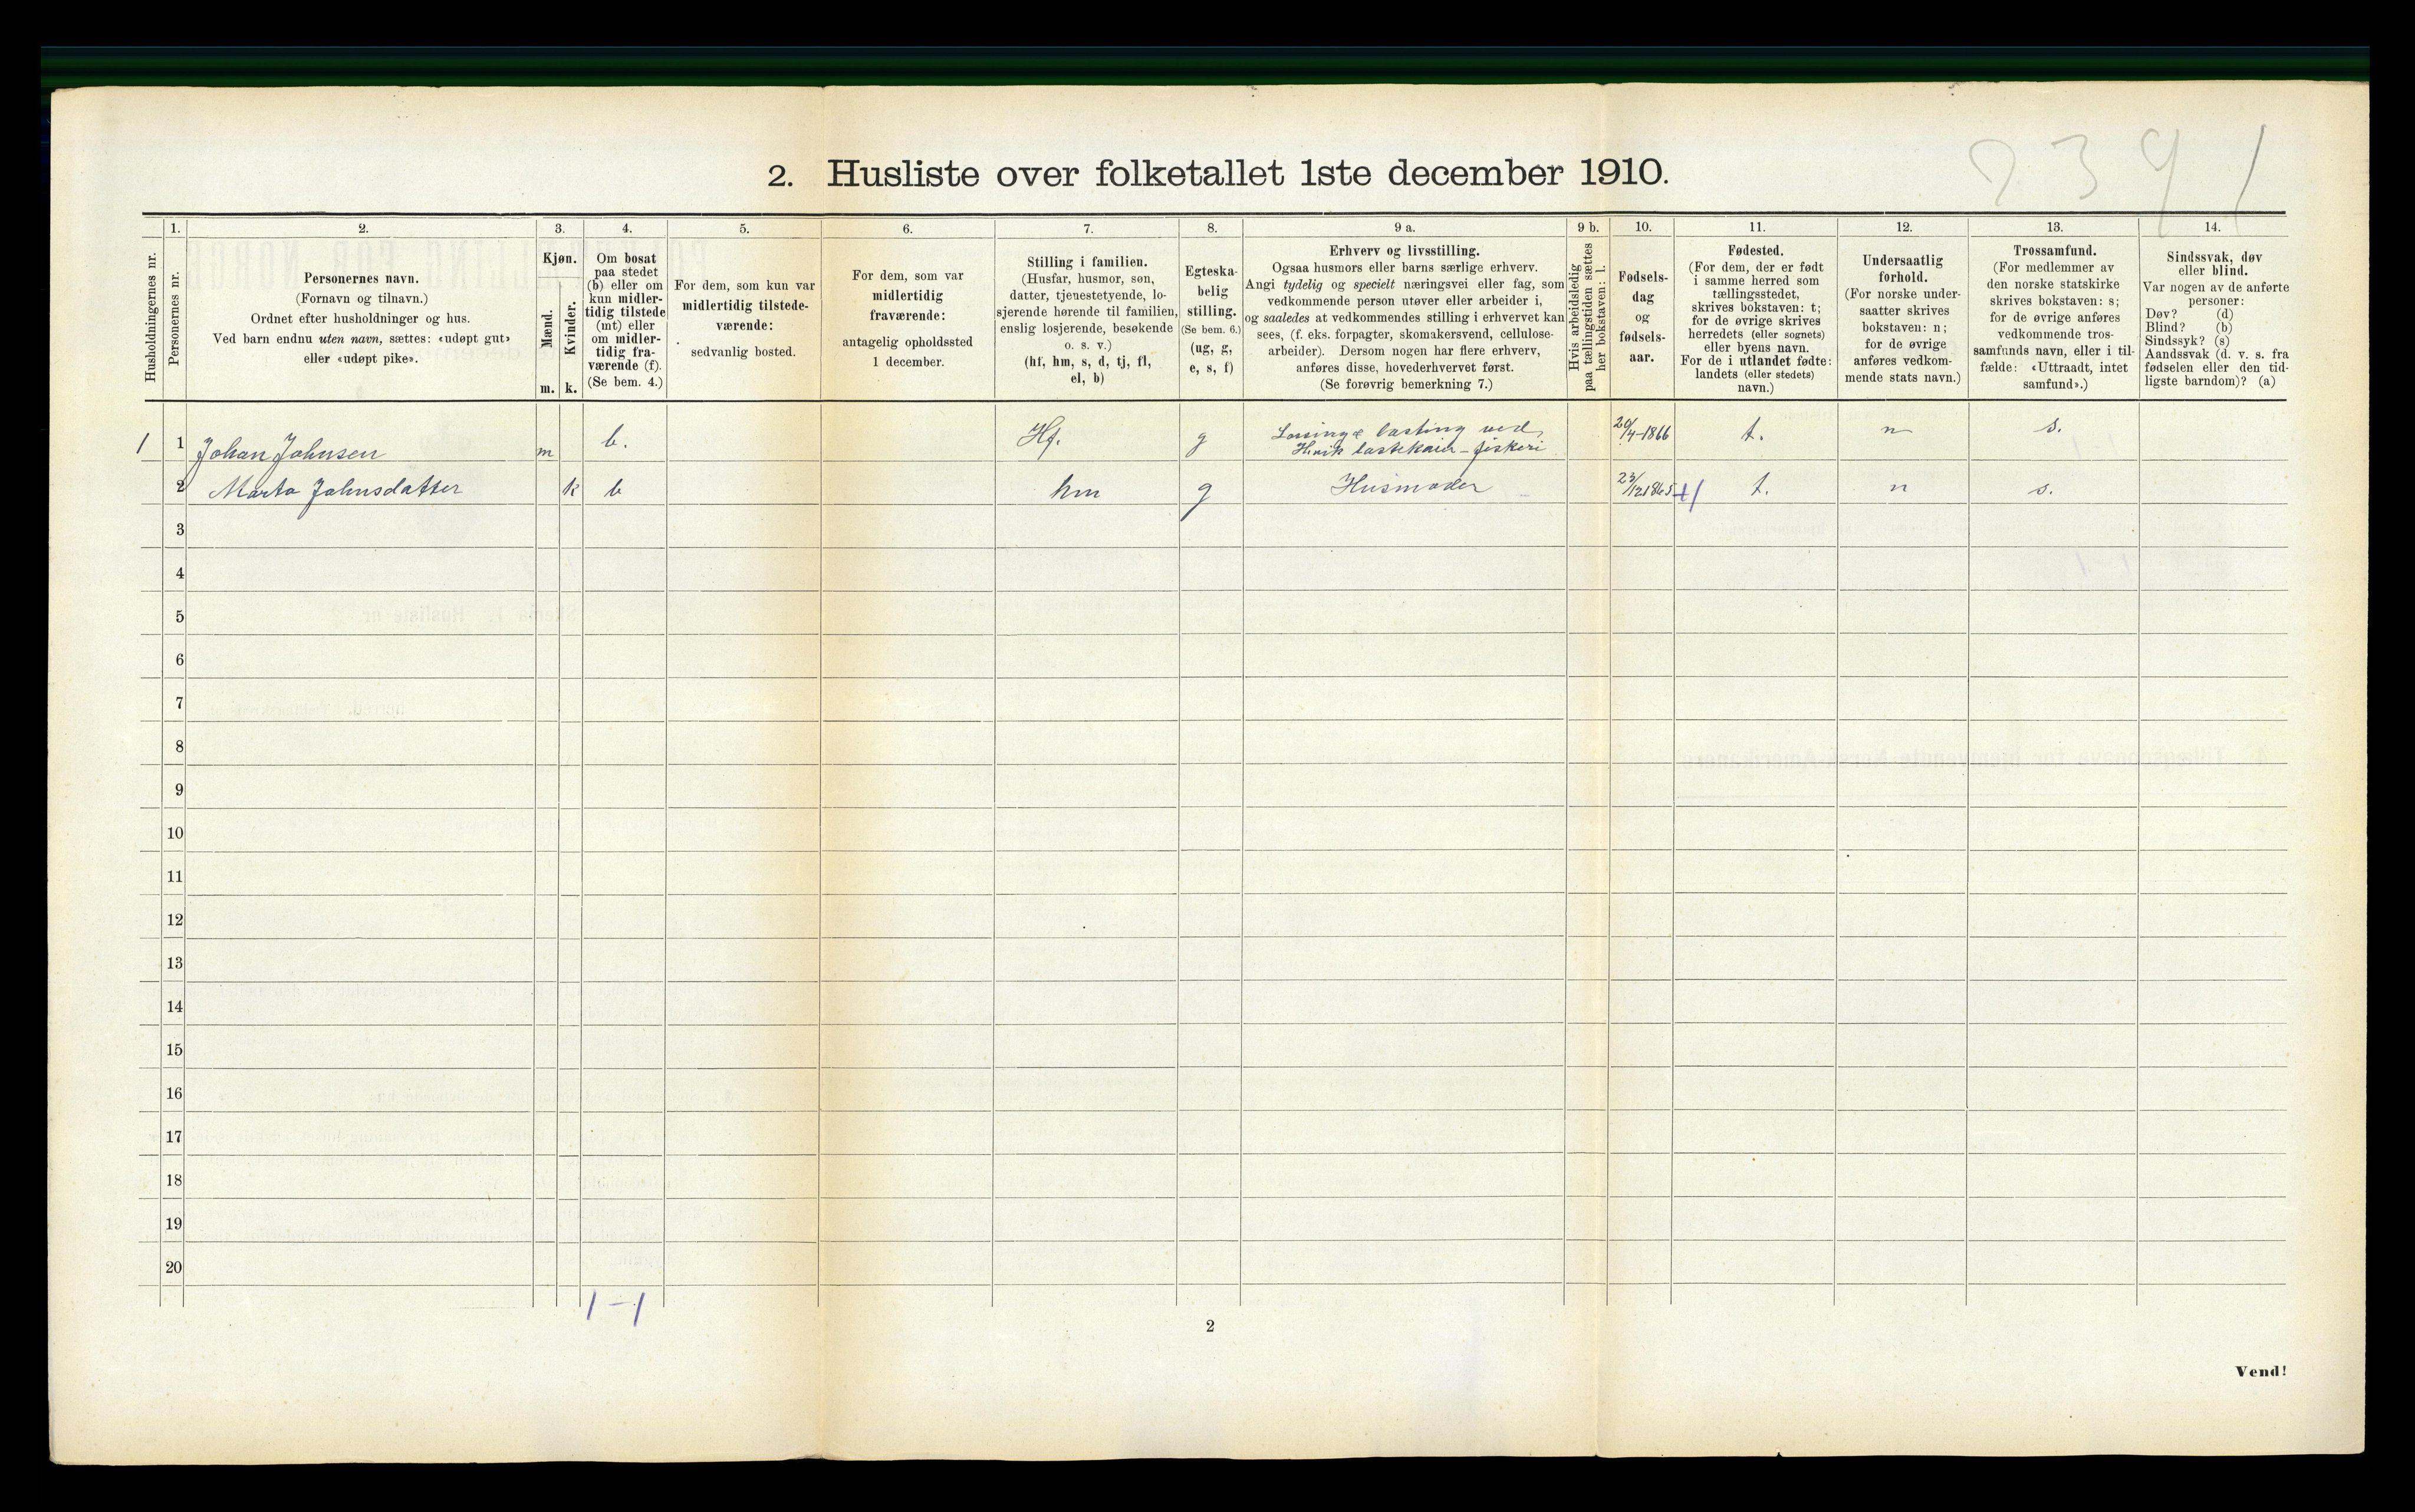 2391
2. Husliste over folketallet 1ste december 1910.
Husholdningernes nr.
1.
Personernes nr.
2.
Personernes navn.
(Fornavn og tilnavn.)
Ordnet efter husholdninger og hus.
Ved barn endnu uten navn, sættes: «udøpt gut»
eller «udøpt pike».
3.
Kjøn.
Mænd.
m.
Kvinder.
k.
4.
Om bosat
paa stedet
(b) eller om
kun midler-
tidig tilstede
(mt) eller
om midler-
tidig fra-
værende (f).
(Se bem. 4.)
5.
For dem, som kun var
midlertidig tilstede-
værende:
sedvanlig bosted.
6.
For dem, som var
midlertidig
fraværende:
antagelig opholdssted
1 december.
7.
Stilling i familien.
(Husfar, husmor, søn,
datter, tjenestetyende, lo-
sjerende hørende til familien,
enslig losjerende, besøkende
o. s. v.)
(hf, hm, s, d, tj, fl,
el, b)
8.
Egteska-
belig
stilling.
(Se bem. 6.)
(ug, g,
e, s, f)
9 a.
Erhverv og livsstilling.
Ogsaa husmors eller barns særlige erhverv.
Angi tydelig og specielt næringsvei eller fag, som
vedkommende person utøver eller arbeider i,
og saaledes at vedkommendes stilling i erhvervet kan
sees, (f. eks. forpagter, skomakersvend, cellulose-
arbeider). Dersom nogen har flere erhverv,
anføres disse, hovederhvervet først.
(Se forøvrig bemerkning 7.)
9 b.
Hvis arbeidsledig
paa tællingstiden sættes
her bokstaven: l.
10.
Fødsels-
dag
og
fødsels-
aar.
11.
Fødested.
(For dem, der er født
i samme herred som
tællingsstedet,
skrives bokstaven: t;
for de øvrige skrives
herredets (eller sognets)
eller byens navn.
For de i utlandet fødte:
landets (eller stedets)
navn.)
12.
Undersaatlig
forhold.
(For norske under-
saatter skrives
bokstaven: n;
for de øvrige
anføres vedkom-
mende stats navn.)
13.
Trossamfund.
(For medlemmer av
den norske statskirke
skrives bokstaven: s;
for de øvrige anføres
vedkommende tros-
samfunds navn, eller i til-
fælde: «Uttraadt, intet
samfund».)
14.
Sindssvak, døv
eller blind.
Var nogen av de anførte
personer:
Døv? (d)
Blind? (b)
Sindssyk? (s)
Aandssvak (d. v. s. fra
fødselen eller den tid-
ligste barndom)? (a)
1 1 Johan Johnsen m b. Hf. g Lossing & lasting ved
lastekaien - fiskeri 20/4-1866 t. n s.
2 Marta Johnsdatter k b hm g Husmoder 23/12 1865 t. n s.
3
4
5
6
7
8
9
10
11
12
13
14
15
16
17
18
19
20
1-1
2
Vend!